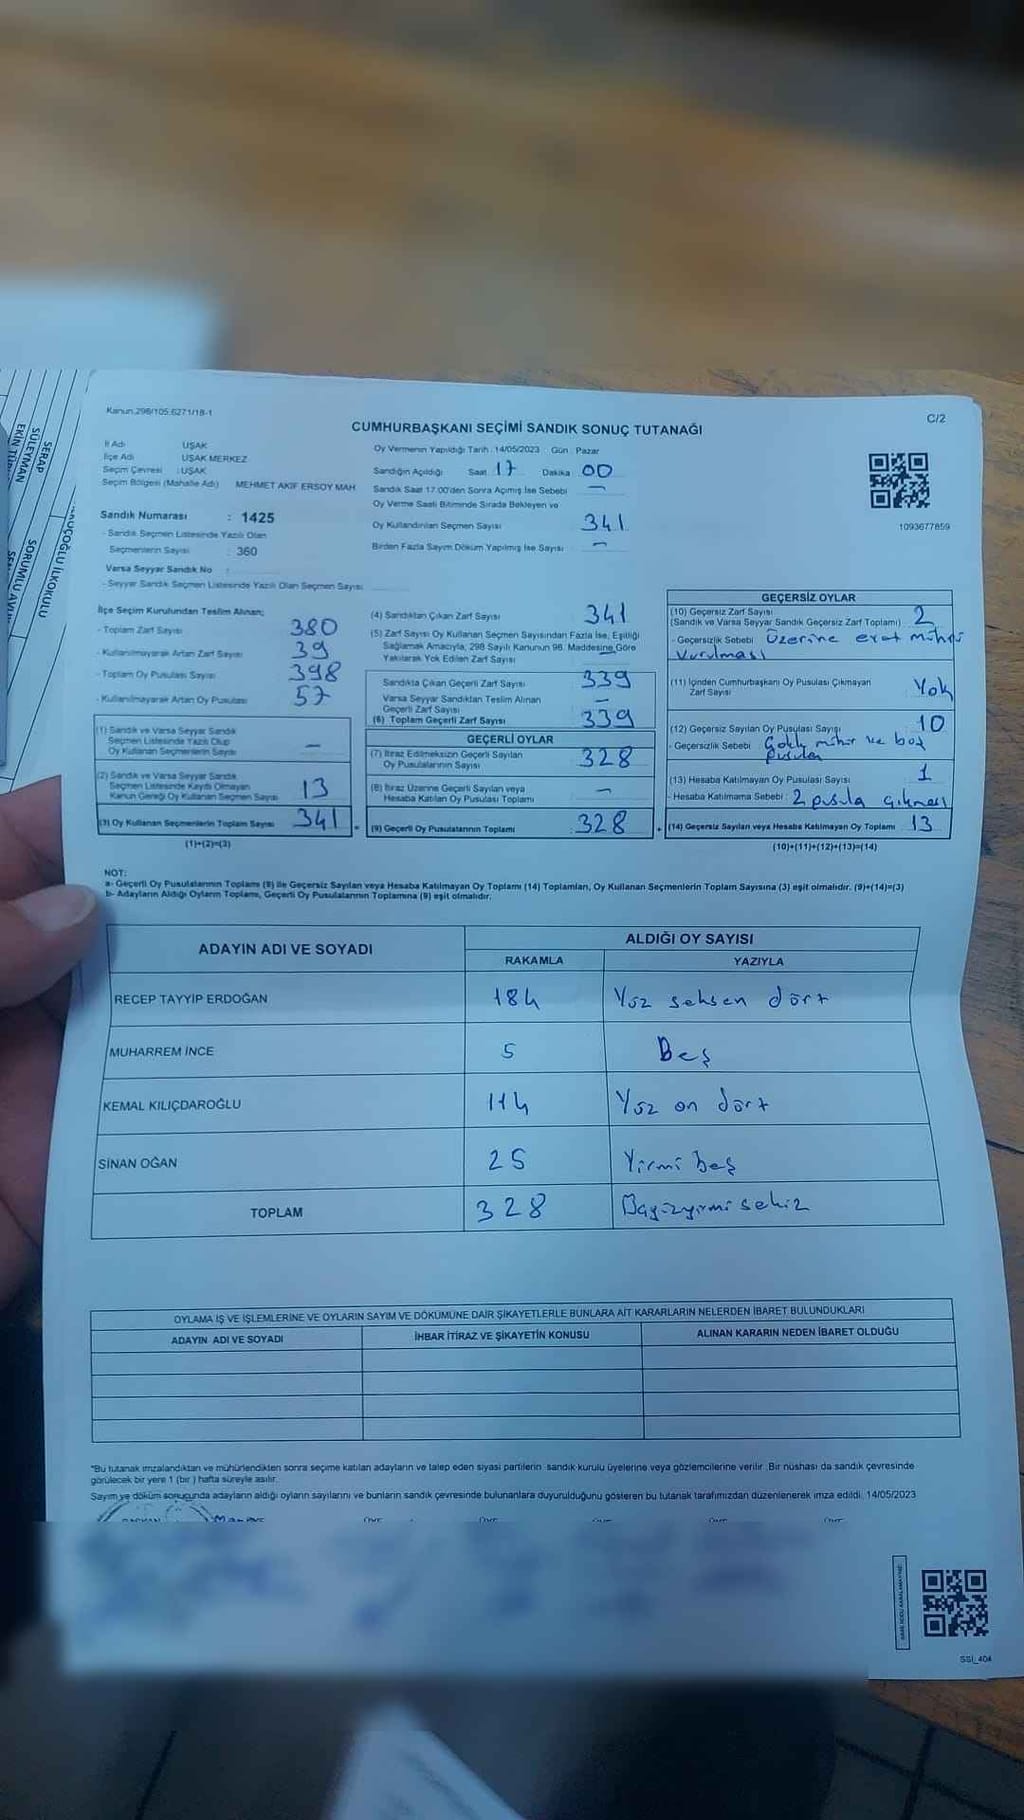 Kanun.298/105.6271/18-1
C/2
CUMHURBAŞKANI SEÇİMİ SANDIK SONUÇ TUTANAĞI
İl Adı UŞAK
İlçe Adı UŞAK MERKEZ
Seçim Çevresi : UŞAK
Seçim Bölgesi (Mahalle Adı) MEHMET AKİF ERSOY MAH
Sandık Numarası : 1425
- Sandık Seçmen Listesinde Yazılı Olan
Seçmenlerin Sayısı : 360
Varsa Seyyar Sandık No :
- Seyyar Sandık Seçmen Listesinde Yazılı Olan Seçmen Sayısı
Oy Vermenin Yapıldığı Tarih : 14/05/2023 Gün : Pazar
Sandığın Açıldığı Saat 17 Dakika 00
Sandık Saat 17.00'den Sonra Açılmış İse Sebebi —
Oy Verme Saati Bitiminde Sırada Bekleyen ve
Oy Kullandırılan Seçmen Sayısı 341
Birden Fazla Sayım Döküm Yapılmış İse Sayısı —
1093677859
İlçe Seçim Kurulundan Teslim Alınan;
- Toplam Zarf Sayısı 380
- Kullanılmayarak Artan Zarf Sayısı 39
- Toplam Oy Pusulası Sayısı 398
- Kullanılmayarak Artan Oy Pusulası 57
(1) Sandık ve Varsa Seyyar Sandık
Seçmen Listesinde Yazılı Olup
Oy Kullanan Seçmenlerin Sayısı —
(2) Sandık ve Varsa Seyyar Sandık
Seçmen Listesinde Kayıtlı Olmayan
Kanun Gereği Oy Kullanan Seçmen Sayısı 13
(3) Oy Kullanan Seçmenlerin Toplam Sayısı 341
(1)+(2)=(3)
(4) Sandıktan Çıkan Zarf Sayısı 341
(5) Zarf Sayısı Oy Kullanan Seçmen Sayısından Fazla İse, Eşitliği
Sağlamak Amacıyla, 298 Sayılı Kanunun 98. Maddesine Göre
Yakılarak Yok Edilen Zarf Sayısı —
Sandıkta Çıkan Geçerli Zarf Sayısı 339
Varsa Seyyar Sandıktan Teslim Alınan
Geçerli Zarf Sayısı —
(6) Toplam Geçerli Zarf Sayısı 339
GEÇERLİ OYLAR
(7) İtiraz Edilmeksizin Geçerli Sayılan
Oy Pusulalarının Sayısı 328
(8) İtiraz Üzerine Geçerli Sayılan veya
Hesaba Katılan Oy Pusulası Toplamı —
(9) Geçerli Oy Pusulalarının Toplamı 328
GEÇERSİZ OYLAR
(10) Geçersiz Zarf Sayısı
(Sandık ve Varsa Seyyar Sandık Geçersiz Zarf Toplamı) 2
- Geçersizlik Sebebi Üzerine evet mührü
Vurulması
(11) İçinden Cumhurbaşkanı Oy Pusulası Çıkmayan
Zarf Sayısı Yok
(12) Geçersiz Sayılan Oy Pusulası Sayısı 10
Geçersizlik Sebebi : Çoklu mühür ve boş
pusula
(13) Hesaba Katılmayan Oy Pusulası Sayısı 1
- Hesaba Katılmama Sebebi : 2 pusula çıkması
(14) Geçersiz Sayılan veya Hesaba Katılmayan Oy Toplamı 13
(10)+(11)+(12)+(13)=(14)
NOT:
a- Geçerli Oy Pusulalarının Toplamı (9) ile Geçersiz Sayılan veya Hesaba Katılmayan Oy Toplamı (14) Toplamları, Oy Kullanan Seçmenlerin Toplam Sayısına (3) eşit olmalıdır. (9)+(14)=(3)
b- Adayların Aldığı Oyların Toplamı, Geçerli Oy Pusulalarının Toplamına (9) eşit olmalıdır.
ADAYIN ADI VE SOYADI
ALDIĞI OY SAYISI
RAKAMLA YAZIYLA
RECEP TAYYİP ERDOĞAN 184 Yüz seksen dört
MUHARREM İNCE 5 Beş
KEMAL KILIÇDAROĞLU 114 Yüz on dört
SİNAN OĞAN 25 Yirmi beş
TOPLAM 328
OYLAMA İŞ VE İŞLEMLERİNE VE OYLARIN SAYIM VE DÖKÜMÜNE DAİR ŞİKAYETLERLE BUNLARA AİT KARARLARIN NELERDEN İBARET BULUNDUKLARI
ADAYIN ADI VE SOYADI İHBAR İTİRAZ VE ŞİKAYETİN KONUSU ALINAN KARARIN NEDEN İBARET OLDUĞU
*Bu tutanak imzalandıktan ve mühürlendikten sonra seçime katılan adayların ve talep eden siyasi partilerin sandık kurulu üyelerine veya gözlemcilerine verilir. Bir nüshası da sandık çevresinde
görülecek bir yere 1 (bir) hafta süreyle asılır.
Sayım ve döküm sonucunda adayların aldığı oyların sayılarını ve bunların sandık çevresinde bulunanlara duyurulduğunu gösteren bu tutanak tarafımızdan düzenlenerek imza edildi. 14/05/2023
SSİ_404
SERAP
SÜLEYMAN
SORUMLU
İLKOKULU